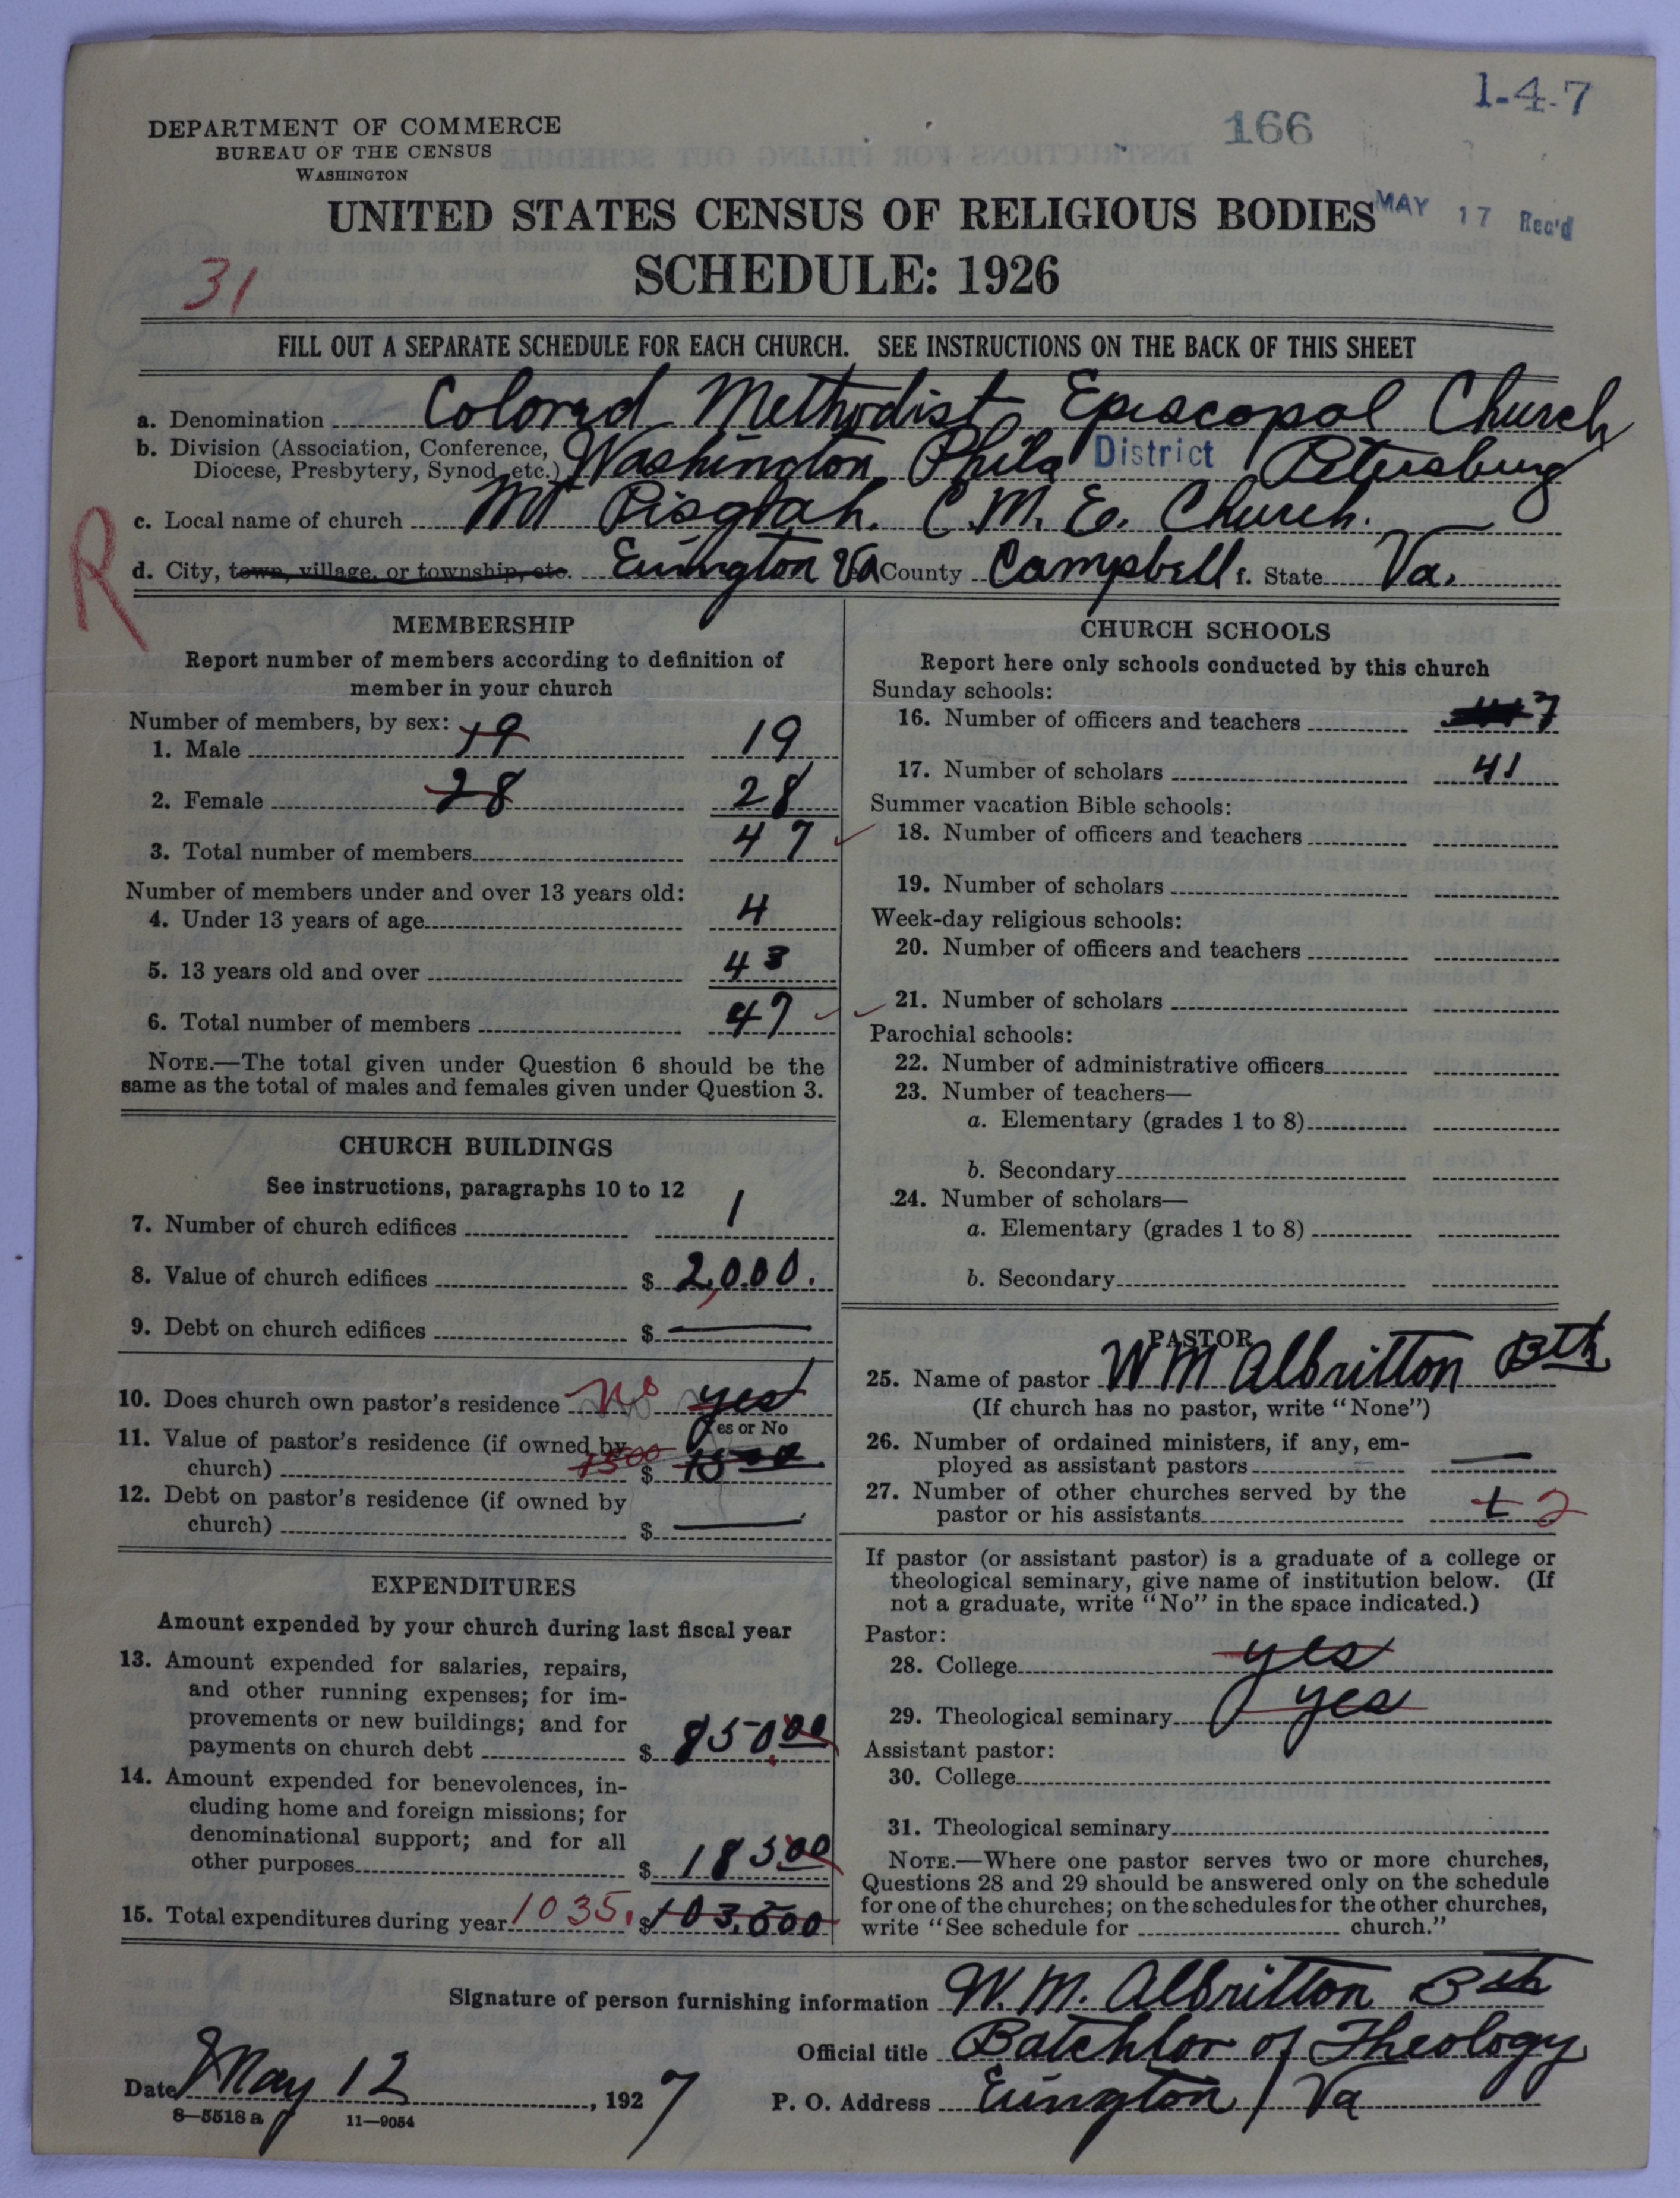 1-4-7
166
DEPARTMENT OF COMMERCE
BUREAU OF THE CENSUS
WASHINGTON
UNITED STATES CENSUS OF RELIGIOUS BODIES
MAY 17 Rec'd
SCHEDULE: 1926
31
FILL OUT A SEPARATE SCHEDULE FOR EACH CHURCH. SEE INSTRUCTIONS ON THE BACK OF THIS SHEET
a. Denomination Colored Methodist Episcopal Church
b. Division (Association, Conference, Diocese, Presbytery, Synod, etc.) Washington Phila District Petersburg
c. Local name of church Mt Pisgah. C. M. E. Church.
R
d. City, town, village, or township, etc. Evington Va County Campbell f. State Va.
MEMBERSHIP
Report number of members according to definition of
member in your church
Number of members, by sex:
1. Male 19 19
2. Female 28 28
3. Total number of members 47
Number of members under and over 13 years old:
4. Under 13 years of age 4
5. 13 years old and over 43
6. Total number of members 47
NOTE.—The total given under Question 6 should be the
same as the total of males and females given under Question 3.
CHURCH BUILDINGS
See instructions, paragraphs 10 to 12
7. Number of church edifices 1
8. Value of church edifices $ 2,000.
9. Debt on church edifices $ —
10. Does church own pastor's residence No yes
Yes or No
11. Value of pastor's residence (if owned by
church) 1500 $ 1500
12. Debt on pastor's residence (if owned by
church) $ —
EXPENDITURES
Amount expended by your church during last fiscal year
13. Amount expended for salaries, repairs,
and other running expenses; for im-
provements or new buildings; and for
payments on church debt $ 850.00
14. Amount expended for benevolences, in-
cluding home and foreign missions; for
denominational support; and for all
other purposes $ 185.00
15. Total expenditures during year 1035. $ 103,500
CHURCH SCHOOLS
Report here only schools conducted by this church
Sunday schools:
16. Number of officers and teachers 7
17. Number of scholars 41
Summer vacation Bible schools:
18. Number of officers and teachers
19. Number of scholars
Week-day religious schools:
20. Number of officers and teachers
21. Number of scholars
Parochial schools:
22. Number of administrative officers
23. Number of teachers—
a. Elementary (grades 1 to 8)
b. Secondary
24. Number of scholars—
a. Elementary (grades 1 to 8)
b. Secondary
PASTOR
25. Name of pastor W M Albritton Bth
(If church has no pastor, write "None")
26. Number of ordained ministers, if any, em-
ployed as assistant pastors —
27. Number of other churches served by the
pastor or his assistants 1 2
If pastor (or assistant pastor) is a graduate of a college or
theological seminary, give name of institution below. (If
not a graduate, write "No" in the space indicated.)
Pastor:
28. College yes
29. Theological seminary yes
Assistant pastor:
30. College
31. Theological seminary
NOTE.—Where one pastor serves two or more churches,
Questions 28 and 29 should be answered only on the schedule
for one of the churches; on the schedules for the other churches,
write "See schedule for church."
Signature of person furnishing information W. M. Albritton Bth
Official title Batchlor of Theology
Date May 12, 1927
P. O. Address Evington / Va
8—5518 a 11—9054